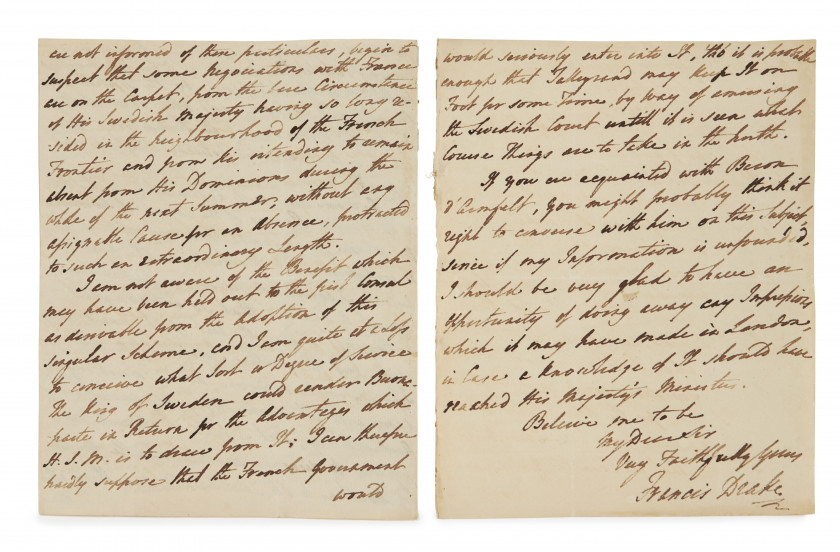 are not informed of these particulars, begin to
suspect that some Negociations with France
are on the Carpet, from the bare Circumstance
of His Swedish Majesty having so long re-
sided in the neighbourhood of the French
Frontier and from his intending to remain
absent from His Dominions during the
whole of the next Summer, without any
assignable Cause for an absence, protracted
to such an extraordinary Length.
I am not aware of the Benefit which
may have been held out to the first Consul
as derivable from the Adoption of this
singular Scheme, and I am quite at a Loss
to conceive what Sort or Degree of Service
the King of Sweden could render Buona-
parte in Return for the Advantages which
H. S. M. is to draw from It; I can therefore
hardly suppose that the French Government
would
would seriously enter into It, tho' it is probable
enough that Taleyrand may keep It on
Foot for some Time, by Way of amusing
the Swedish Court untill it is seen what
Course Things are to take in the north.
If you are acquainted with Baron
d'Armfelt, you might probably think it
right to converse with him on this Subject,
since if my Information is unfounded,
I should be very glad to have an
Opportunity of doing away any Impressions
which it may have made in London,
in Case a Knowledge of It should have
reached His Majesty's Ministers.
Believe me to be
My Dear Sir
Very Faithfully Yours
Francis Drake